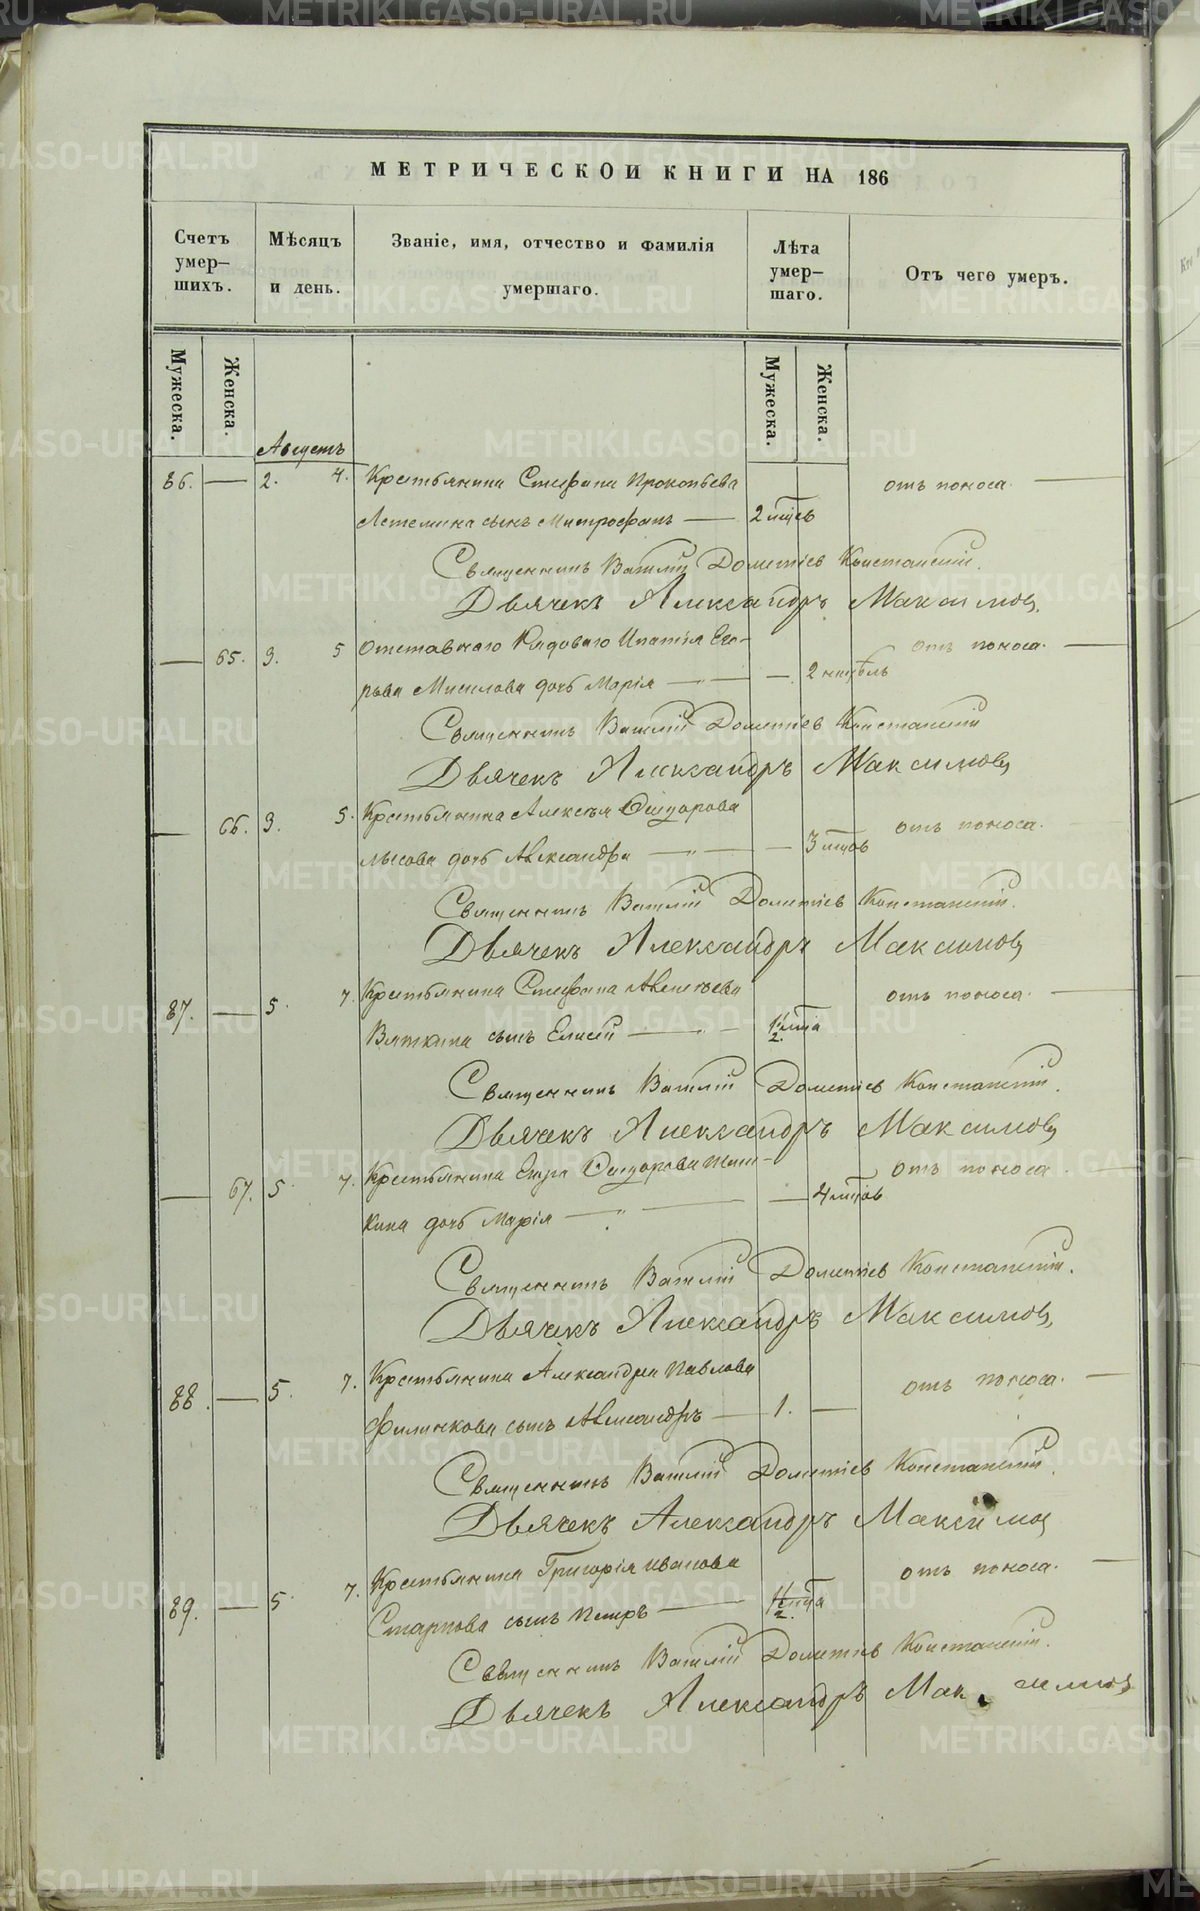 МЕТРИЧЕСКОЙ КНИГИ НА 186
Счетъ умер– шихъ.
Мѣсяцъ и день.
Званіе, имя, отчество и фамилія умершаго.
Лѣта умер– шаго.
Отъ чего умеръ.
Мужеска.
Женска.
Мужеска.
Женска.
Августъ
86. — 2. 4. Крестьянина Стефана Прокопьева отъ поноса.
сынъ Митрофанъ — 2 мцѣв
Священникъ Василій Дометіев
Дьячекъ Александръ Максимовъ
— 65. 3. 5 Отставнаго Рядоваго Ипатія Его- отъ поноса.
рьва дочь Марія — — 2 нидѣль
Священникъ Василій Дометіев
Дьячекъ Александръ Максимовъ
— 66. 3. 5. Крестьянина Алексѣя Сидорова отъ поноса.
Лысова дочь Александра — — 3 мцов
Священникъ Василій Дометіев
Дьячекъ Александръ Максимовъ
87. — 5. 7. Крестьянина Стефана отъ поноса.
Вяткина сынъ Елисей — 1 1/2 лта
Священникъ Василій Дометіев
Дьячекъ Александръ Максимовъ
— 67. 5. 7. Крестьянина Сидорова отъ поноса.
кина дочь Марія — — 4 мцов
Священникъ Василій Дометіев
Дьячекъ Александръ Максимовъ
88. — 5. 7. Крестьянина Александра Павлова отъ поноса.
Филинкова сынъ Александръ — 1. —
Священникъ Василій Дометіев
Дьячекъ Александръ Максимов
89. — 5. 7. Крестьянина Григорія Иванова отъ поноса.
сынъ Петръ — 1 1/2 лта
Священникъ Василій Дометіев
Дьячекъ Александръ Максимовъ
METRIKI.GASO-URAL.RU